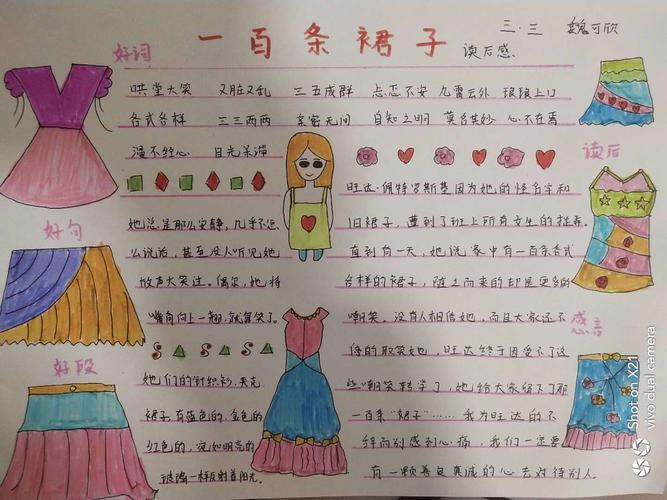 三.三 魏可欣
一百条裙子
读后感.
好词
哄堂大笑 又脏又乱 三五成群 忐忑不安 九霄云外 琅琅上口
各式各样 三三两两 亲密无间 自知之明 莫名其妙 心不在焉
漫不经心 目光呆滞
好句
她总是那么安静,几乎不怎
么说话,甚至没人听见她
放声大笑过。偶尔,她将
嘴角向上一翘,就算笑了。
好段
她们的针织衫、夹克、
裙子有蓝色的、金色的、
红色的,宛如明亮的
玻璃一样反射着阳光。
读后
感言
旺达·佩特罗斯基因为她的怪名字和
旧裙子,遭到了班上所有女生的挫弄。
直到有一天,她说家中有一百条各式
各样的裙子,随之而来的却是更多的
嘲笑。没有人相信她,而且大家还不
停的取笑她,旺达终于因受不了这
些嘲笑转学了,她给大家留下了那
一百条"裙子"……我为旺达的不
辞而别感到心痛,我们一定要
有一颗善良真诚的心去对待别人.
Shot on X21
vivo dual camera